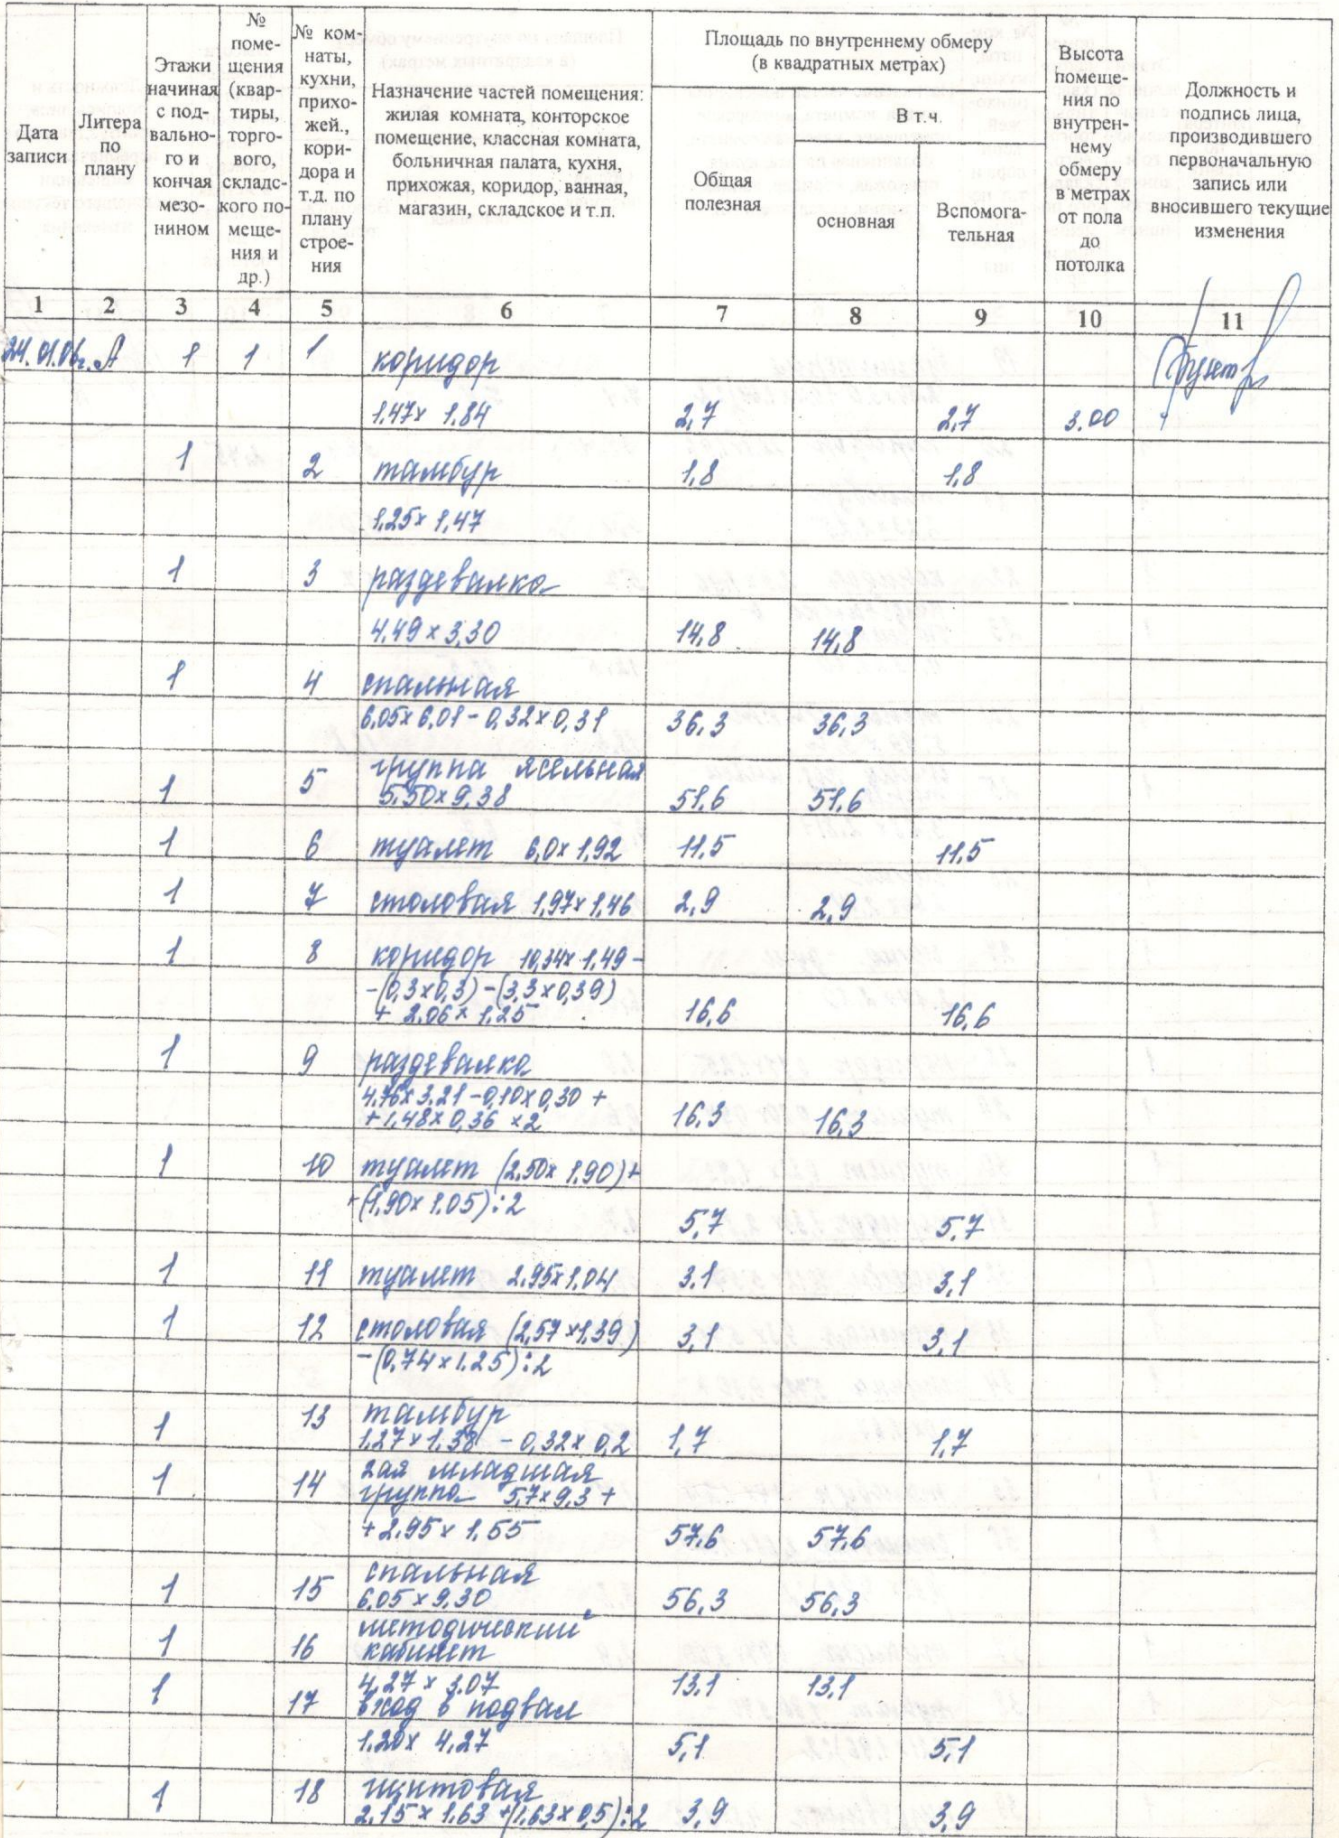 Дата записи | Литера по плану | Этажи начиная с под-вально-го и кончая мезо-нином | № поме-щения (квар-тиры, торго-вого, складс-кого по-меще-ния и др.) | № ком-наты, кухни, прихо-жей., кори-дора и т.д. по плану строе-ния | Назначение частей помещения: жилая комната, конторское помещение, классная комната, больничная палата, кухня, прихожая, коридор, ванная, магазин, складское и т.п. | Площадь по внутреннему обмеру (в квадратных метрах) | Общая полезная | В т.ч. | основная | Вспомога-тельная | Высота помеще-ния по внутрен-нему обмеру в метрах от пола до потолка | Должность и подпись лица, производившего первоначальную запись или вносившего текущие изменения
1 2 3 4 5 6 7 8 9 10 11
24.01.06г. А 1 1 1 коридор
1,47х 1.84 2,7 2,7 3.00
1 2 тамбур 1,8 1,8
1,25х 1,47
1 3 раздевалка
4,49 х 3,30 14,8 14,8
1 4 спальная
6,05х 6,01 - 0,32 х 0,31 36,3 36,3
группа ясельная
1 5 5,50х9,38 51,6 51,6
1 6 туалет 6,0х 1,92 11,5 11,5
1 7 столовая 1,97х 1,46 2,9 2,9
1 8 коридор 10,34х 1,49 -
-(0,3х0,3) -(3,3х0,39)
+ 2,06 х 1,25 16,6 16,6
1 9 раздевалка
4,76х 3,21 -0,10х 0,30 +
+ 1,48х 0,36 х2 16,3 16,3
1 10 туалет (2,50х 1,90)+
+(1,90х 1.05):2
5,7 5,7
1 11 туалет 2,95х1,04 3,1 3,1
1 12 столовая (2,57 х1,39) 3,1 3,1
-(0,74х 1,25):2
1 13 тамбур
1,27х1,38 - 0,32х 0,2 1,7 1,7
2ая младшая
1 14 группа 5,7х9,3 +
+ 2,95 х 1,55 57,6 57,6
спальная
1 15 6,05 х 9,30 56,3 56,3
методический
1 16 кабинет
4,27 х 3.07 13,1 13,1
1 17 вход в подвал
1,20х 4,27 5,1 5,1
1 18 щитовая
2,15 х 1,63 +(1,63х 0,5):2 3,9 3,9